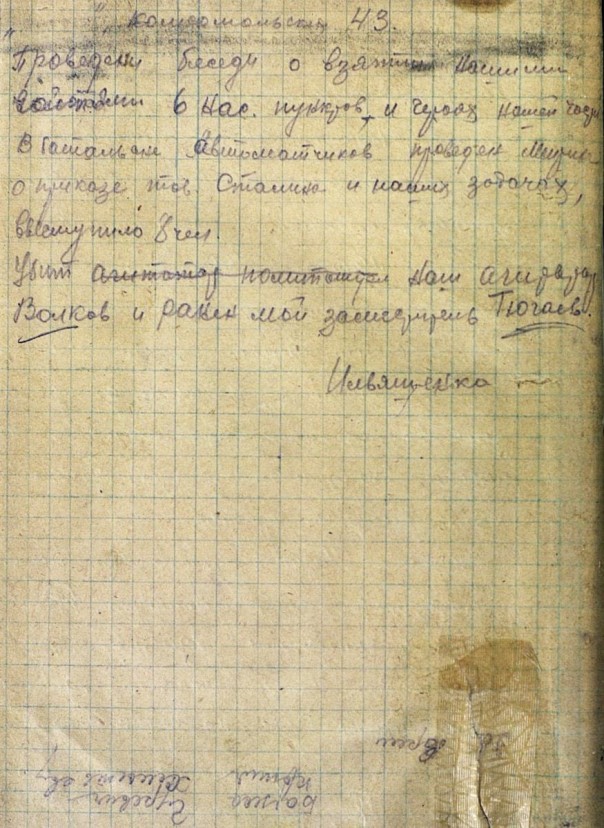 " " Комсомольская 43.
Проведены беседы о взятии нашими
частями 6 нас. пунктов, и героях нашей части
В батальоне Автоматчиков проведен митинг
о приказе тов. Сталина и наших задачах,
выступило 8 чел.
Убит агитатор политотдел наш агитатор
Волков и ранен мой заместитель Тючаев.
Ильященко